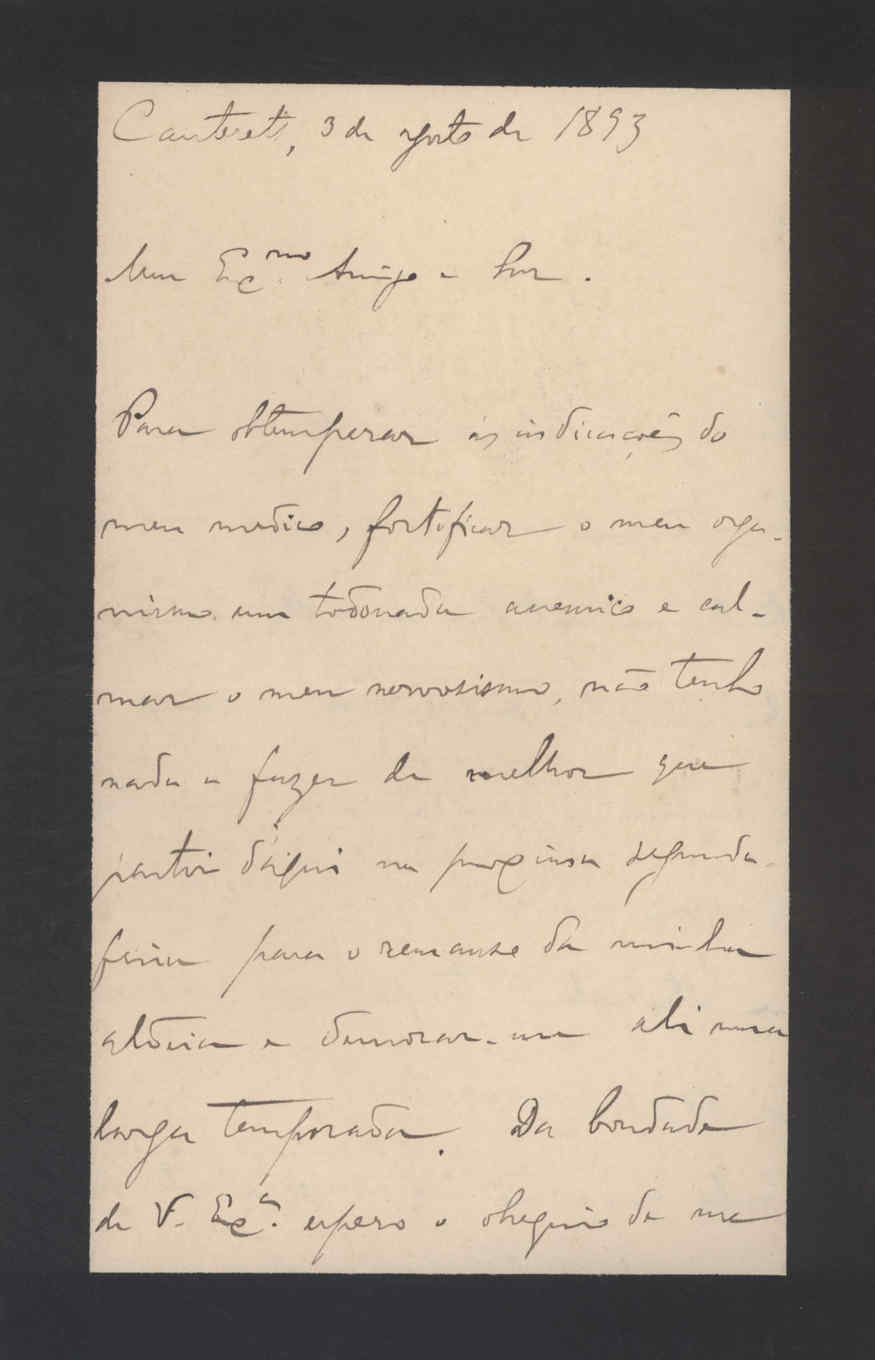 Cauterets, 3 de agosto de 1893
Meu Exc.mo Amigo e Snr.
Para obtemperar ás indicações do
meu medico, fortificar o meu orga-
nismo um anemico e cal-
mar o meu nervosismo, não tenho
nada a fazer de melhor que
partir d'aqui na proxima segunda-
feira para o remanso da minha
aldeia e demorar-me ali uma
larga temporada. Da bondade
de V. Exc.a espero o obsequio de me